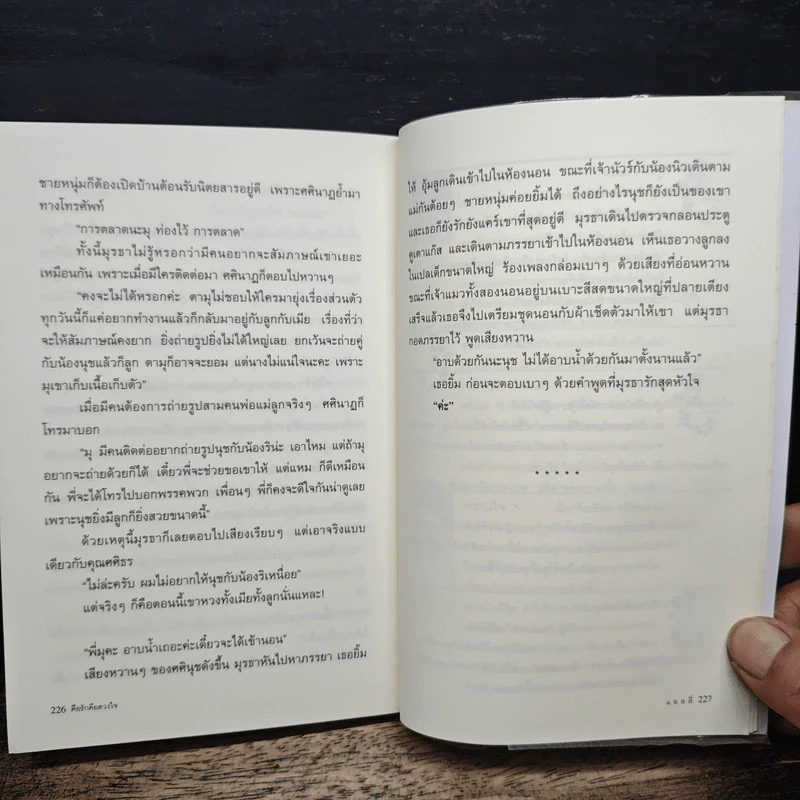 ชายหนุ่มก็ต้องเปิดบ้านต้อนรับนิตยสารอยู่ดี เพราะศศินาฏย้ำมา
ทางโทรศัพท์
“การตลาดนะมุ ท่องไว้ การตลาด”
ทั้งนี้มุรธาไม่รู้หรอกว่ามีคนอยากจะสัมภาษณ์เขาเยอะ
เหมือนกัน เพราะเมื่อมีใครติดต่อมา ศศินาฏก็ตอบไปหวานๆ
“คงจะไม่ได้หรอกค่ะ ตามุไม่ชอบให้ใครมายุ่งเรื่องส่วนตัว
ทุกวันนี้ก็แค่อยากทำงานแล้วก็กลับมาอยู่กับลูกกับเมีย เรื่องที่ว่า
จะให้สัมภาษณ์คงยาก ยิ่งถ่ายรูปยิ่งไม่ได้ใหญ่เลย ยกเว้นจะถ่ายคู่
กับน้องนุชแล้วก็ลูก ตามุก็อาจจะยอม แต่นางไม่แน่ใจนะคะ เพราะ
มุเขาเก็บเนื้อเก็บตัว”
เมื่อมีคนต้องการถ่ายรูปสามคนพ่อแม่ลูกจริงๆ ศศินาฏก็
โทรมาบอก
“มุ มีคนติดต่ออยากถ่ายรูปนุชกับน้องริน่ะ เอาไหม แต่ถ้ามุ
อยากจะถ่ายด้วยก็ได้ เดี๋ยวพี่จะช่วยขอเขาให้ แต่แหม ก็ดีเหมือน
กัน พี่จะได้โทรไปบอกพรรคพวก เพื่อนๆ พี่ก็คงจะดีใจกันน่าดูเลย
เพราะนุชยิ่งมีลูกก็ยิ่งสวยขนาดนี้”
ด้วยเหตุนี้มุรธาก็เลยตอบไปเสียงเรียบๆ แต่เอาจริงแบบ
เดียวกับคุณศศิธร
“ไม่ล่ะครับ ผมไม่อยากให้นุชกับน้องริเหนื่อย”
แต่จริงๆ ก็คือตอนนี้เขาหวงทั้งเมียทั้งลูกนั่นแหละ!
“พี่มุคะ อาบน้ำเถอะค่ะเดี๋ยวจะได้เข้านอน”
เสียงหวานๆ ของศศินุชดังขึ้น มุรธาหันไปหาภรรยา เธอยิ้ม
226 คือรักคือดวงใจ
ให้ อุ้มลูกเดินเข้าไปในห้องนอน ขณะที่เจ้านัวร์กับน้องนิวเดินตาม
แม่กันต้อยๆ ชายหนุ่มค่อยยิ้มได้ ถึงอย่างไรนุชก็ยังเป็นของเขา
และเธอก็ยังรักยังแคร์เขาที่สุดอยู่ดี มุรธาเดินไปตรวจกลอนประตู
คูเตาแก๊ส และเดินตามภรรยาเข้าไปในห้องนอน เห็นเธอวางลูกลง
ในเปลเด็กขนาดใหญ่ ร้องเพลงกล่อมเบาๆ ด้วยเสียงที่อ่อนหวาน
ขณะที่เจ้าแมวทั้งสองนอนอยู่บนเบาะสีสดขนาดใหญ่ที่ปลายเตียง
เสร็จแล้วเธอจึงไปเตรียมชุดนอนกับผ้าเช็ดตัวมาให้เขา แต่มุรธา
กอดภรรยาไว้ พูดเสียงหวาน
“อาบด้วยกันนะนุช ไม่ได้อาบน้ำด้วยกันมาตั้งนานแล้ว”
เธอยิ้ม ก่อนจะตอบเบาๆ ด้วยคำพูดที่มุรธารักสุดหัวใจ
“ค่ะ”
* * * * *
แอลลี่ 227